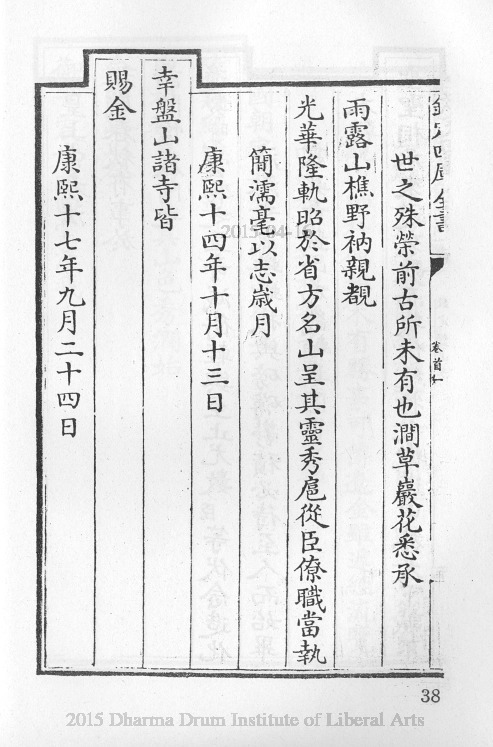 欽定四庫全書
卷首一
世之殊榮前古所未有也澗草巖花悉承
雨露山樵野衲親覩
光華隆軌昭於省方名山呈其靈秀扈從臣僚職當執
簡濡毫以志歲月
康熙十四年十月十三日
幸盤山諸寺皆
賜金
康熙十七年九月二十四日
38
2015 Dharma Drum Institute of Liberal Arts